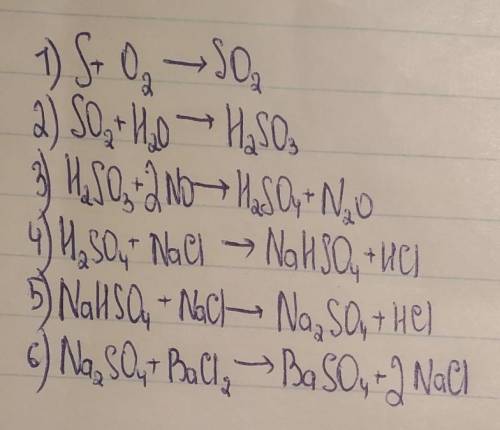 1) S + O₂ → SO₂
2) SO₂ + H₂O → H₂SO₃
3) H₂SO₃ + 2NO → H₂SO₄ + N₂O
4) H₂SO₄ + NaCl → NaHSO₄ + HCl
5) NaHSO₄ + NaCl → Na₂SO₄ + HCl
6) Na₂SO₄ + BaCl₂ → BaSO₄ + 2NaCl